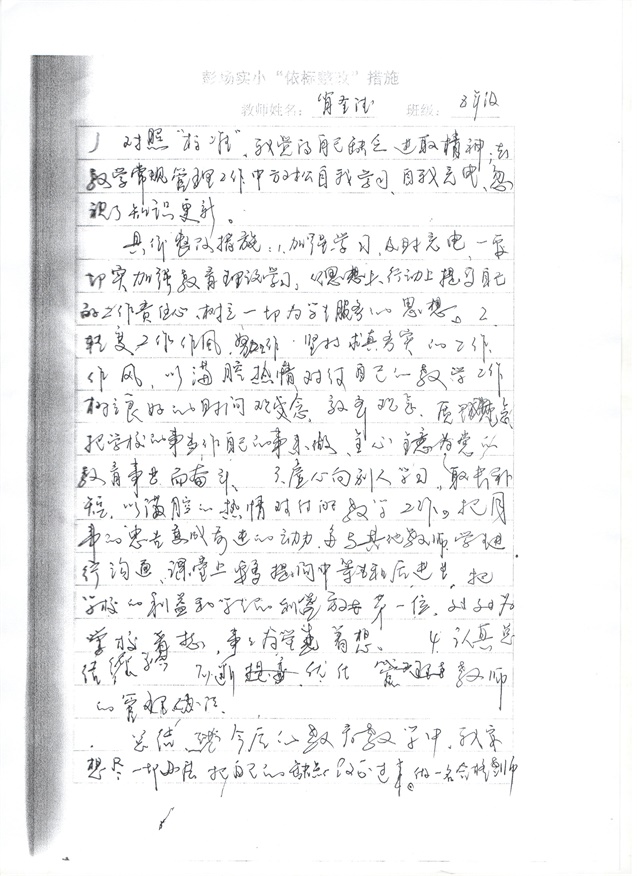 彭场实小“依标整改”措施
教师姓名： 肖 班级：
对照“标准”，我觉得自己缺乏进取精神，在
教学常规管理工作中放松自我学习、自我充电，忽
视了知识更新。
具体整改措施：1、加强学习，及时充电，一要
切实加强教育理论学习，从思想上、行动上提高自己
的工作责任心，树立一切为学生服务的思想。2、
转变工作作风，坚持求真务实的工作
作风，以满腔热情对待自己的教学工作
树立良好的时间观念、教育观念、
把学校的事当作自己的事来做，全心全意为党的
教育事业而奋斗。 3、虚心向别人学习，取长补
短，以满腔的热情对待教学工作。把同
事的忠告变成前进的动力，多与其他教师学生进
行沟通，课堂上多提问中等生和后进生，把
学校的利益和学生的利益放在第一位，处处为
学校着想，事事为学生着想。 4、认真总
结 不断 优化 教师
的管理办法。
总结 今后的教育教学中，我会
想尽一切办法把自己的缺点改正过来，做一名合格教师